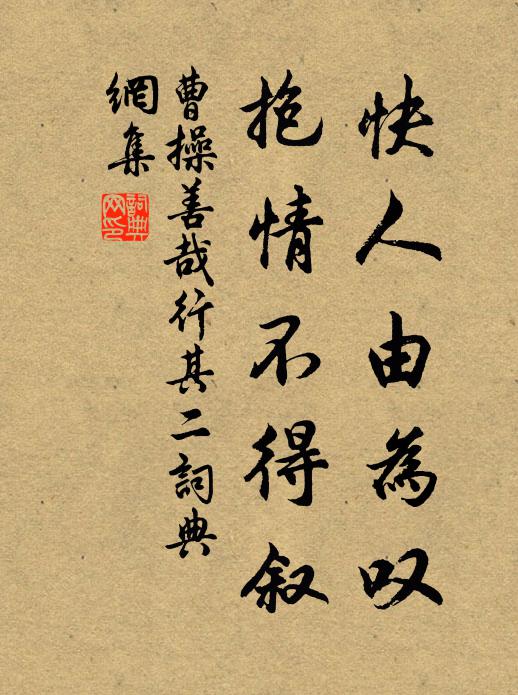 快人由為叹
抱情不得叙
曹操善哉行其二詞典
網集
詞典网印